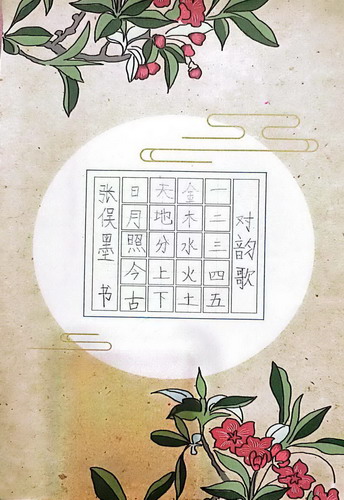 对韵歌
一二三四五
金木水火土
天地分上下
日月照今古
张俣墨 书